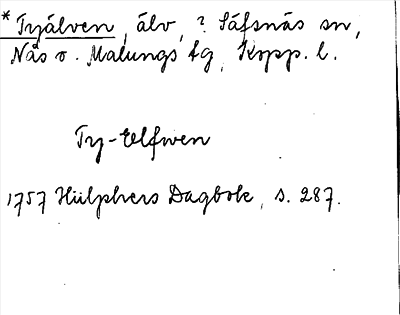 * Tyälven, älv, ? Säfsnäs sn,
Nås o. Malungs tg, Kopp. l.
Ty-Elfwen
1757 Hülphers Dagbok, s. 287.